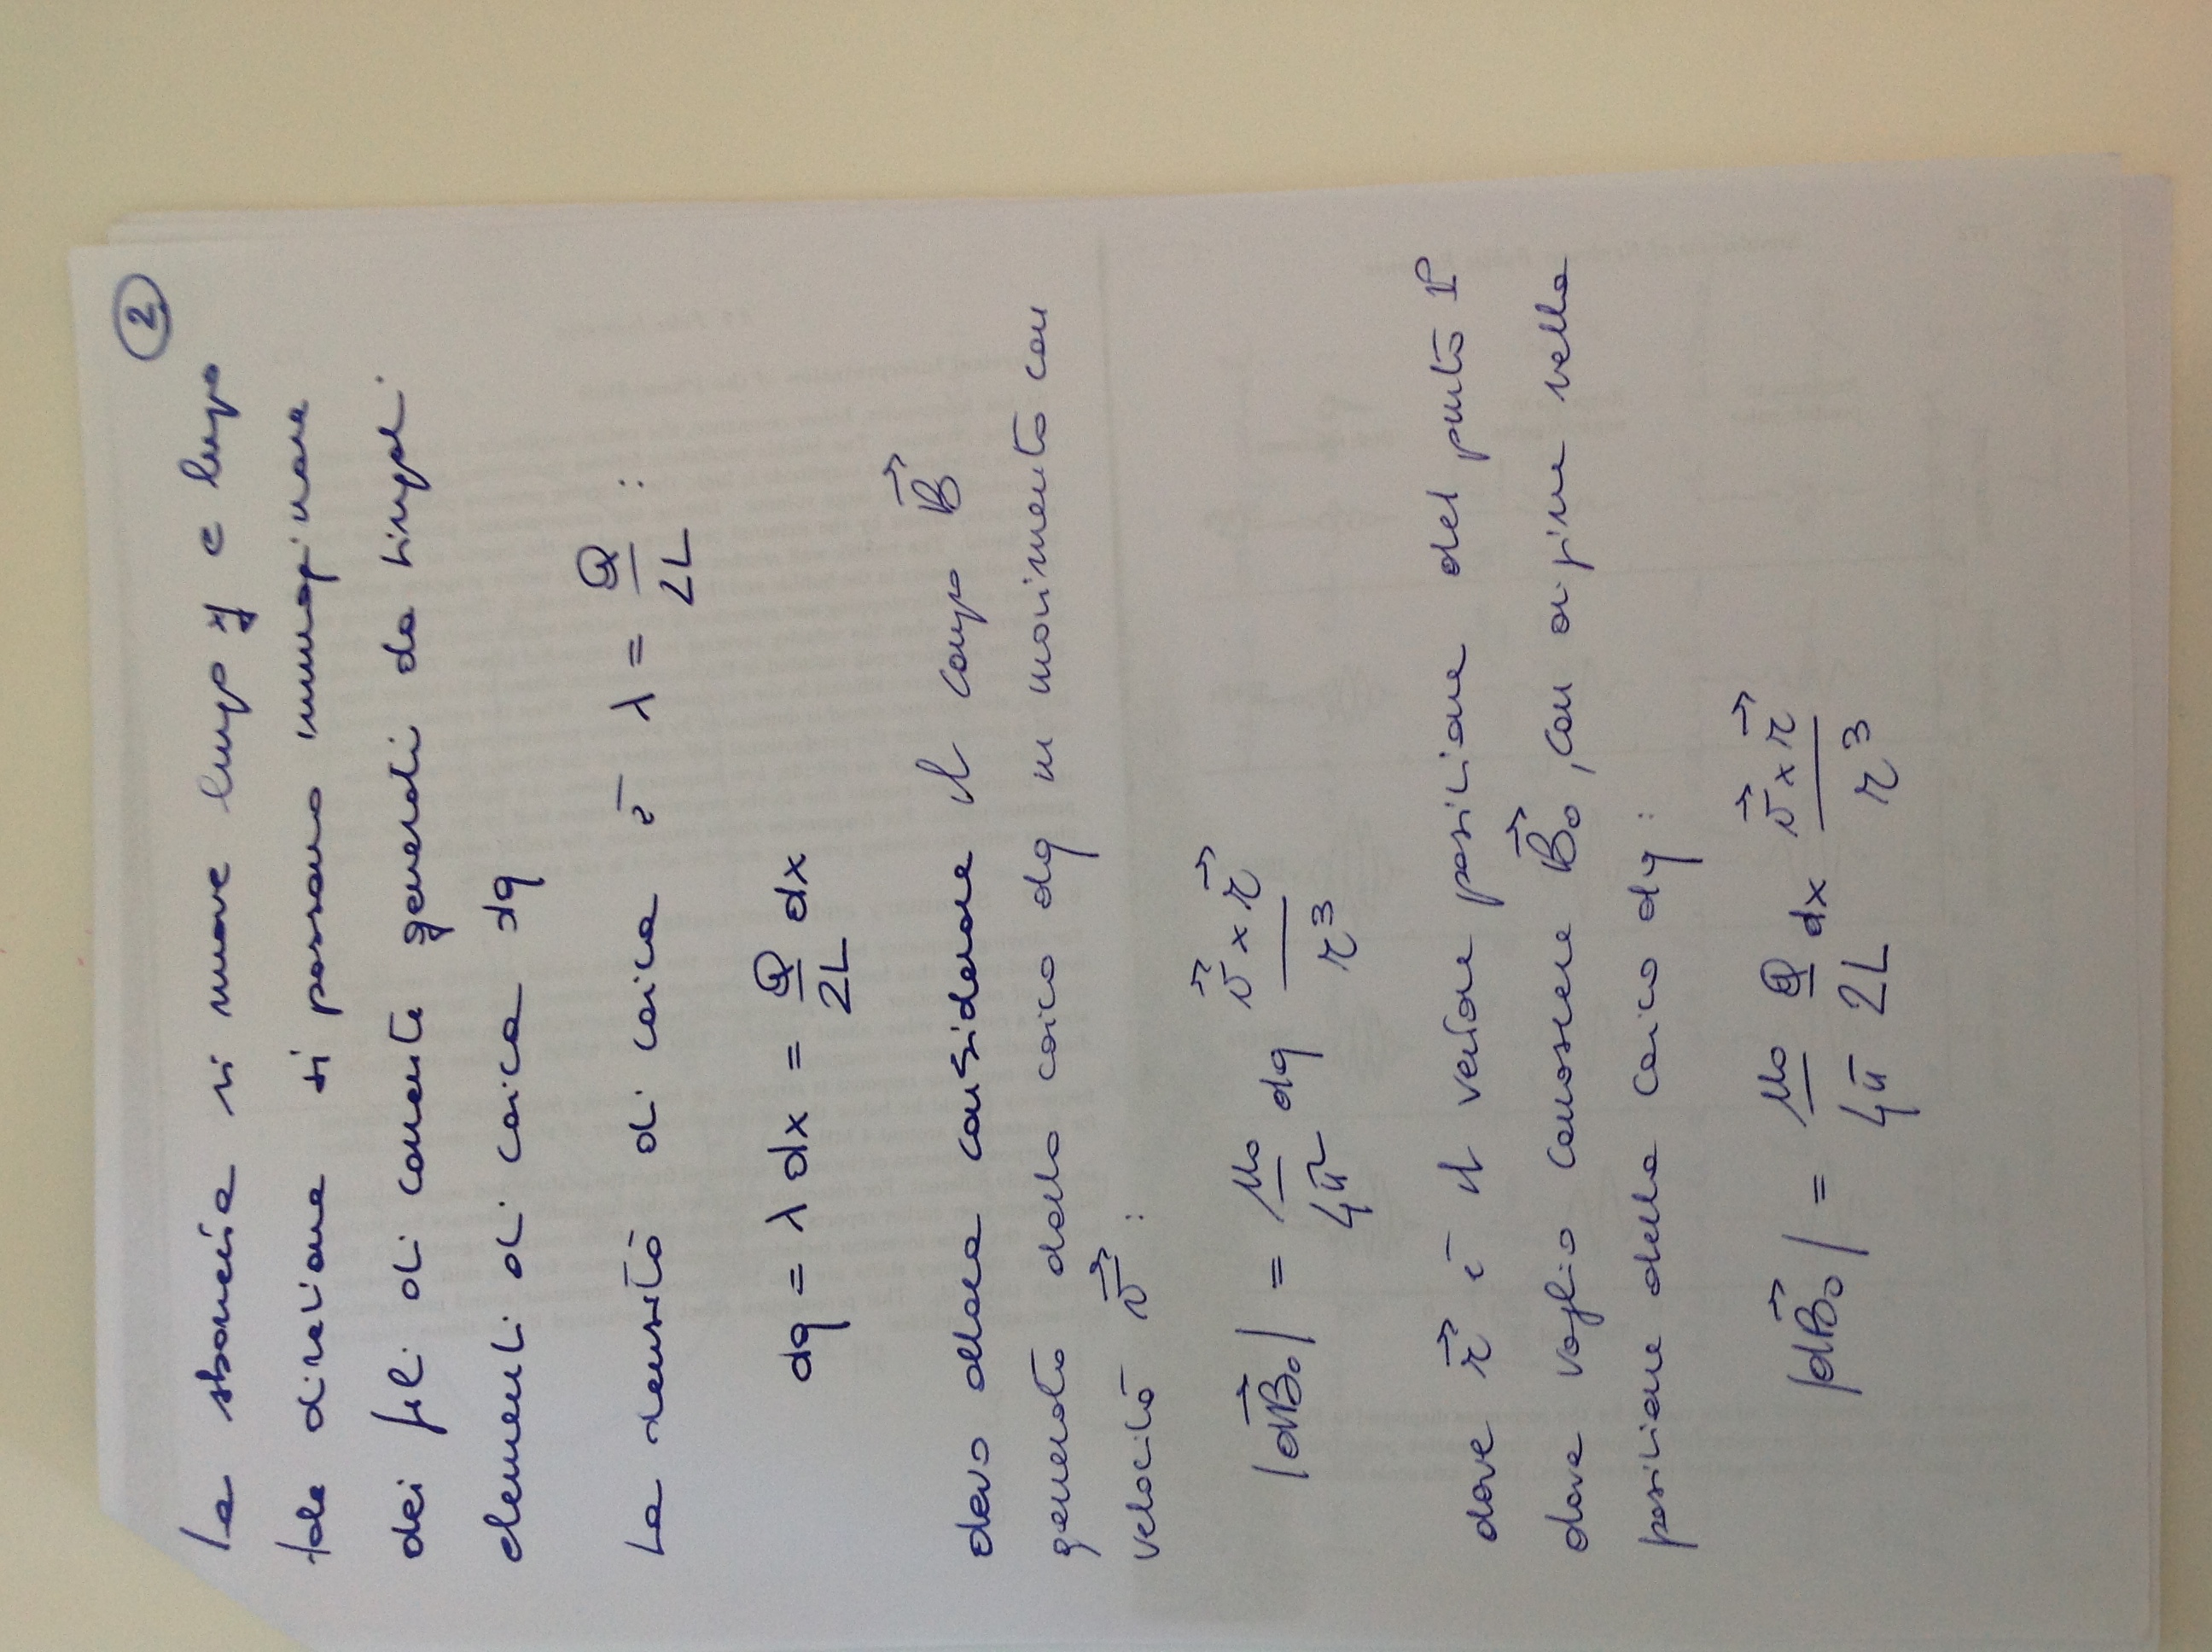 2
La sbarretta si muove lungo y e lungo
tale direzione si possono immaginare
dei fili di corrente generati da singoli
elementi di carica dq
La densità di carica è λ = Q/2L :
dq = λ dx = Q/2L dx
devo allora considerare il campo B⃗
generato dalla carica dq in movimento con
velocità v⃗ :
|dB⃗₀| = μ₀/4π dq v⃗ × r⃗ / r³
dove r⃗ è il vettore posizione del punto P
dove voglio conoscere B⃗₀, con origine nella
posizione della carica dq :
|dB⃗₀| = μ₀/4π Q/2L dx v⃗ × r⃗ / r³